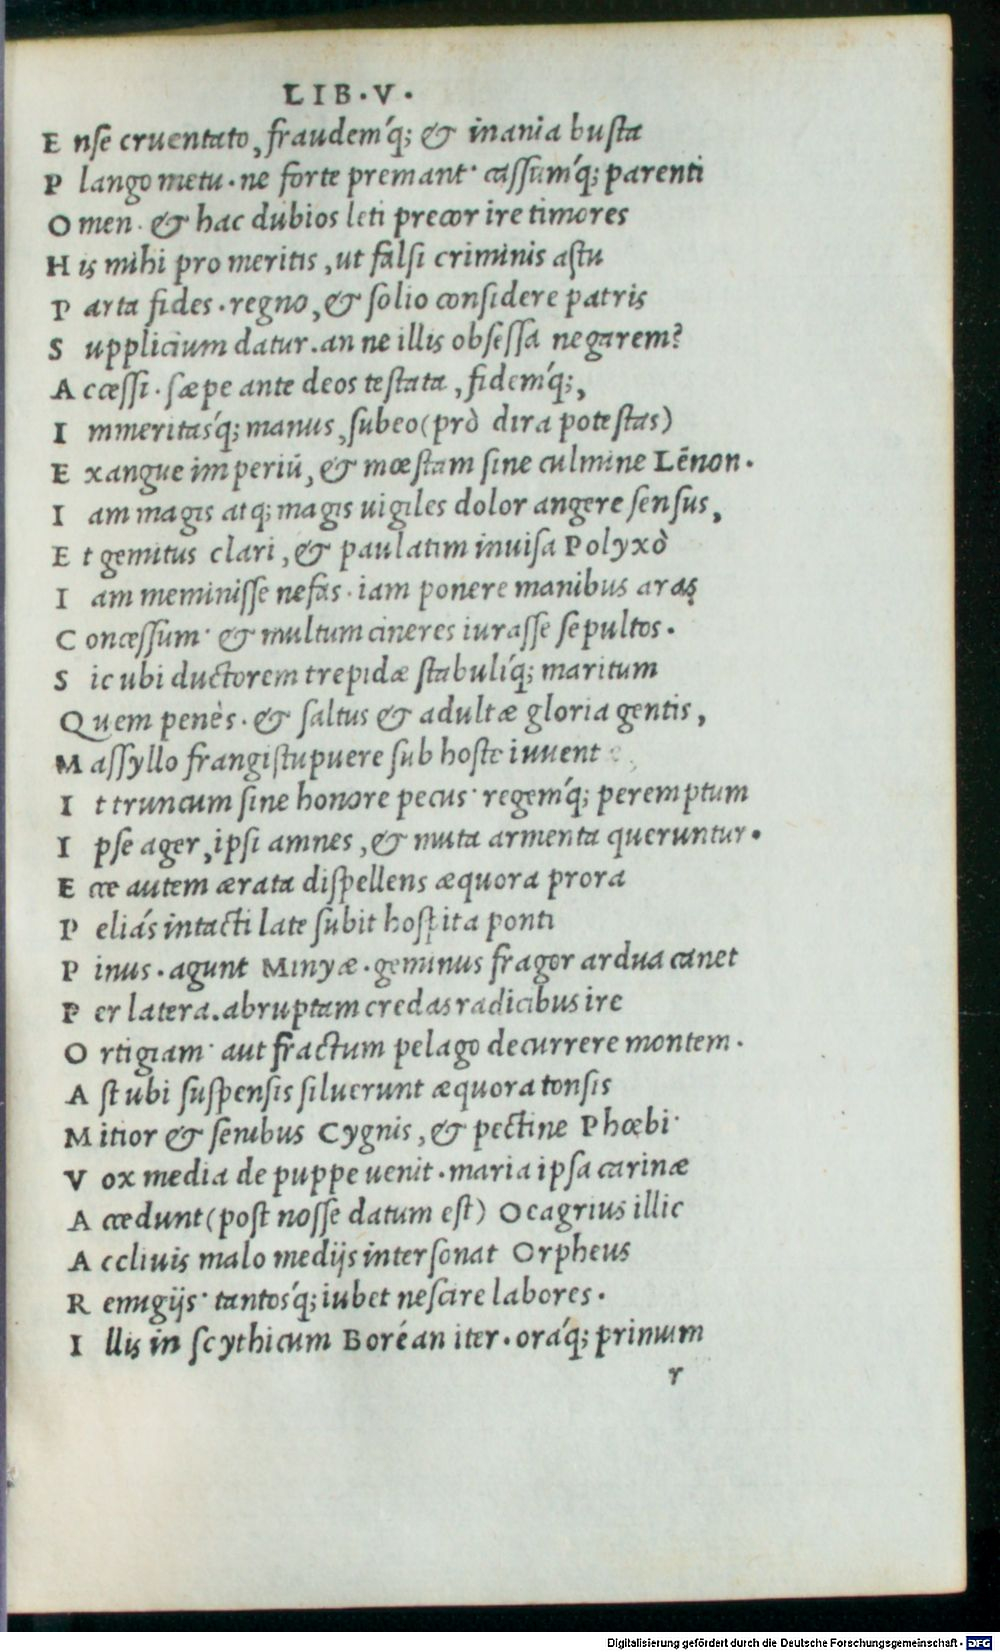 LIB.V.
E nſe cruentato, fraudemq́; & inania buſta
P lango metu. ne forte premant· caſſumq́; parenti
O men. & hac dubios leti precor ire timores
H is mihi pro meritis, ut falſi criminis aſtu
P arta fides. regno, & ſolio conſidere patris
S upplicium datur. an ne illis obſeſſa negarem?
A cceſſi. ſæpe ante deos teſtata, fidemq́;,
I mmeritaſq́; manus, ſubeo (prò dira poteſtas)
E xangue imperiū, & mœstam ſine culmine Lēnon.
I am magis atq; magis uigiles dolor angere ſenſus,
E t gemitus clari, & paulatim inuiſa Polyxò
I am meminiſſe nefas. iam ponere manibus aras
C onceſſum· & multum cineres iuraſſe ſepultos.
S ic ubi ductorem trepidæ ſtabuliq́; maritum
Quem penès. & ſaltus & adultæ gloria gentis,
M aſſyllo frangi ſtupuere ſub hoſte iuuent
I t truncum ſine honore pecus· regemq́; peremptum
I pſe ager, ipſi amnes, & muta armenta queruntur.
E cce autem ærata diſpellens æquora prora
P eliás intacti late ſubit hoſpita ponti
P inus. agunt Minyæ. geminus fragor ardua canet
P er latera. abruptam credas radicibus ire
O rtigiam· aut fractum pelago decurrere montem.
A ſt ubi ſuſpenſis ſiluerunt æquora tonsis
M itior & ſenibus Cygnis, & pectine Phœbi·
V ox media de puppe uenit. maria ipſa carinæ
A ccedunt (poſt noſſe datum eſt) Oeagrius illic
A ccliuis malo medijs interſonat Orpheus
R emigijs· tantoſq́; iubet neſcire labores.
I llis in ſcythicum Boréan iter. oraq́; primum
r
Digitalisierung gefördert durch die Deutsche Forschungsgemeinschaft - DFG